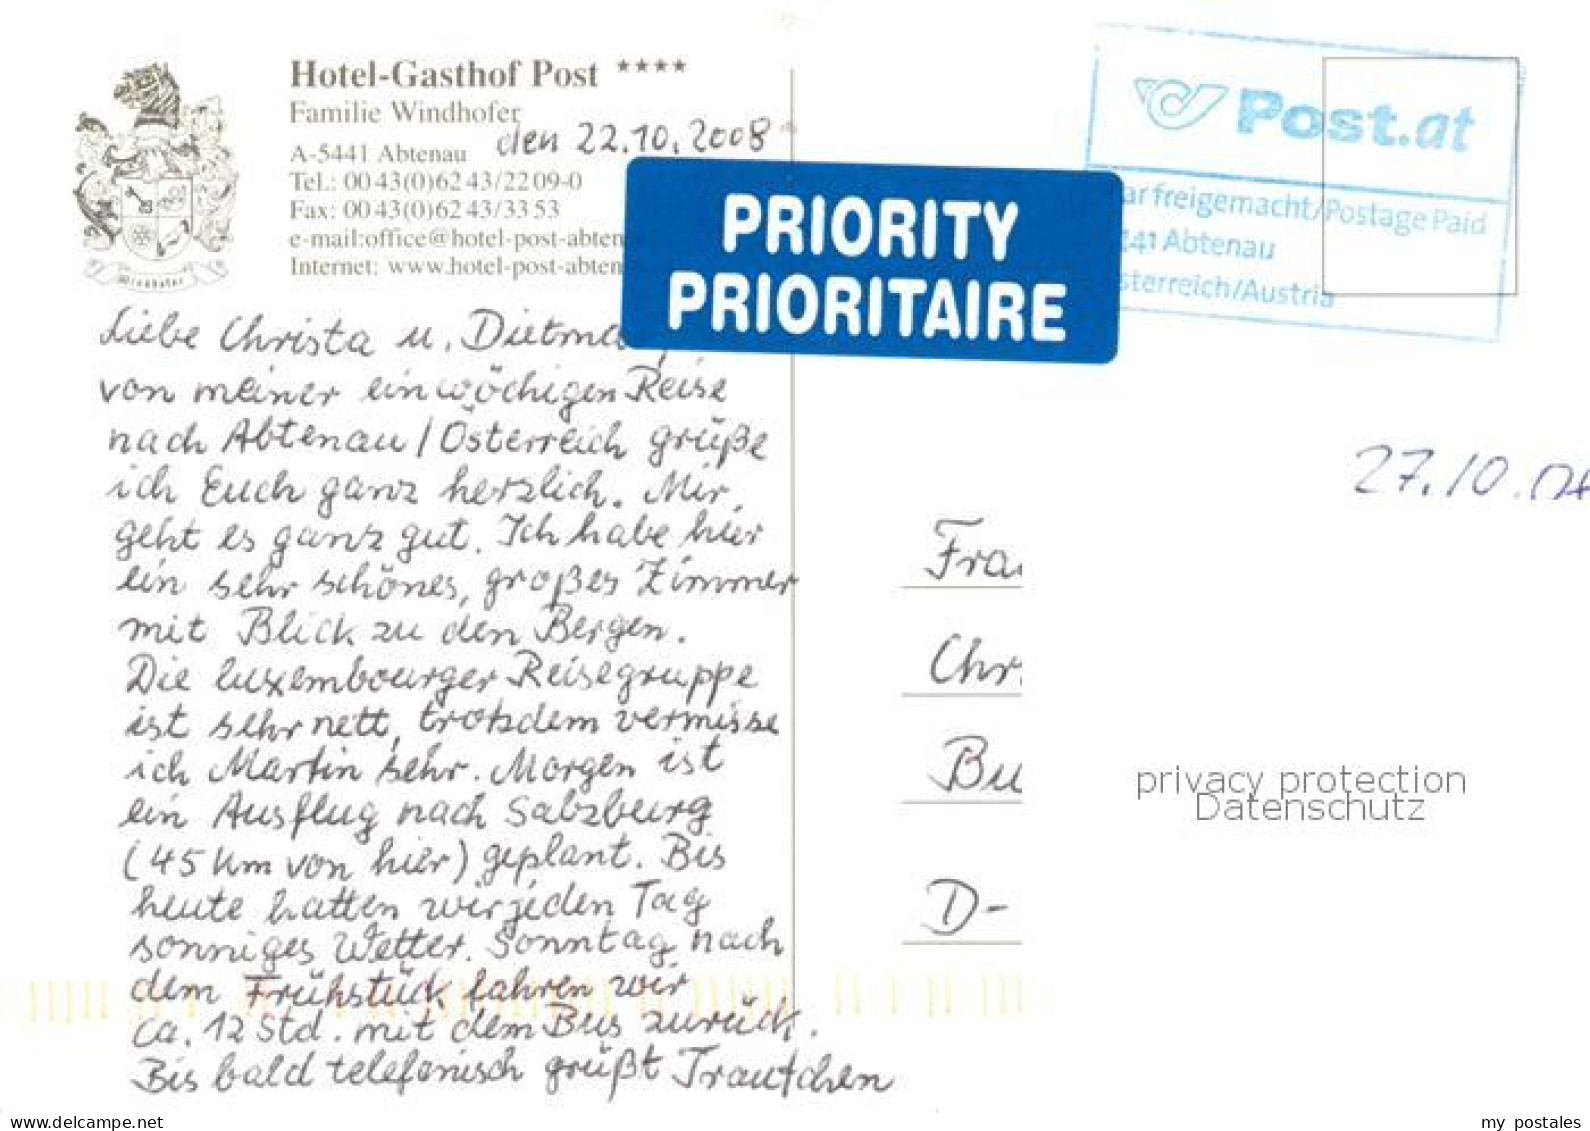 Hotel-Gasthof Post ****
Familie Windhofer
den 22.10.2008
A-5441 Abtenau
Tel.: 00 43(0)62 43/22 09-0
Fax: 00 43(0)62 43/33 53
e-mail:office@hotel-post-abten
Internet: www.hotel-post-abten
Windhofer
PRIORITY
PRIORITAIRE
Post.at
ar freigemacht/Postage Paid
441 Abtenau
sterreich/Austria
Liebe Christa u. Dietma,
von meiner einwöchigen Reise
nach Abtenau / Österreich grüße
ich Euch ganz herzlich. Mir
geht es ganz gut. Ich habe hier
ein sehr schönes, großes Zimmer
mit Blick zu den Bergen.
Die luxembourger Reisegruppe
ist sehr nett, trotzdem vermisse
ich Martin sehr. Morgen ist
ein Ausflug nach Salzburg
(45 km von hier) geplant. Bis
heute hatten wir jeden Tag
sonniges Wetter. Sonntag nach
dem Frühstück fahren wir
ca. 12 Std. mit dem Bus zurück.
Bis bald telefonisch grüßt Trautchen
27.10.
Fra
Chr
Bu
D-
privacy protection
Datenschutz
www.delcampe.net
my_postales